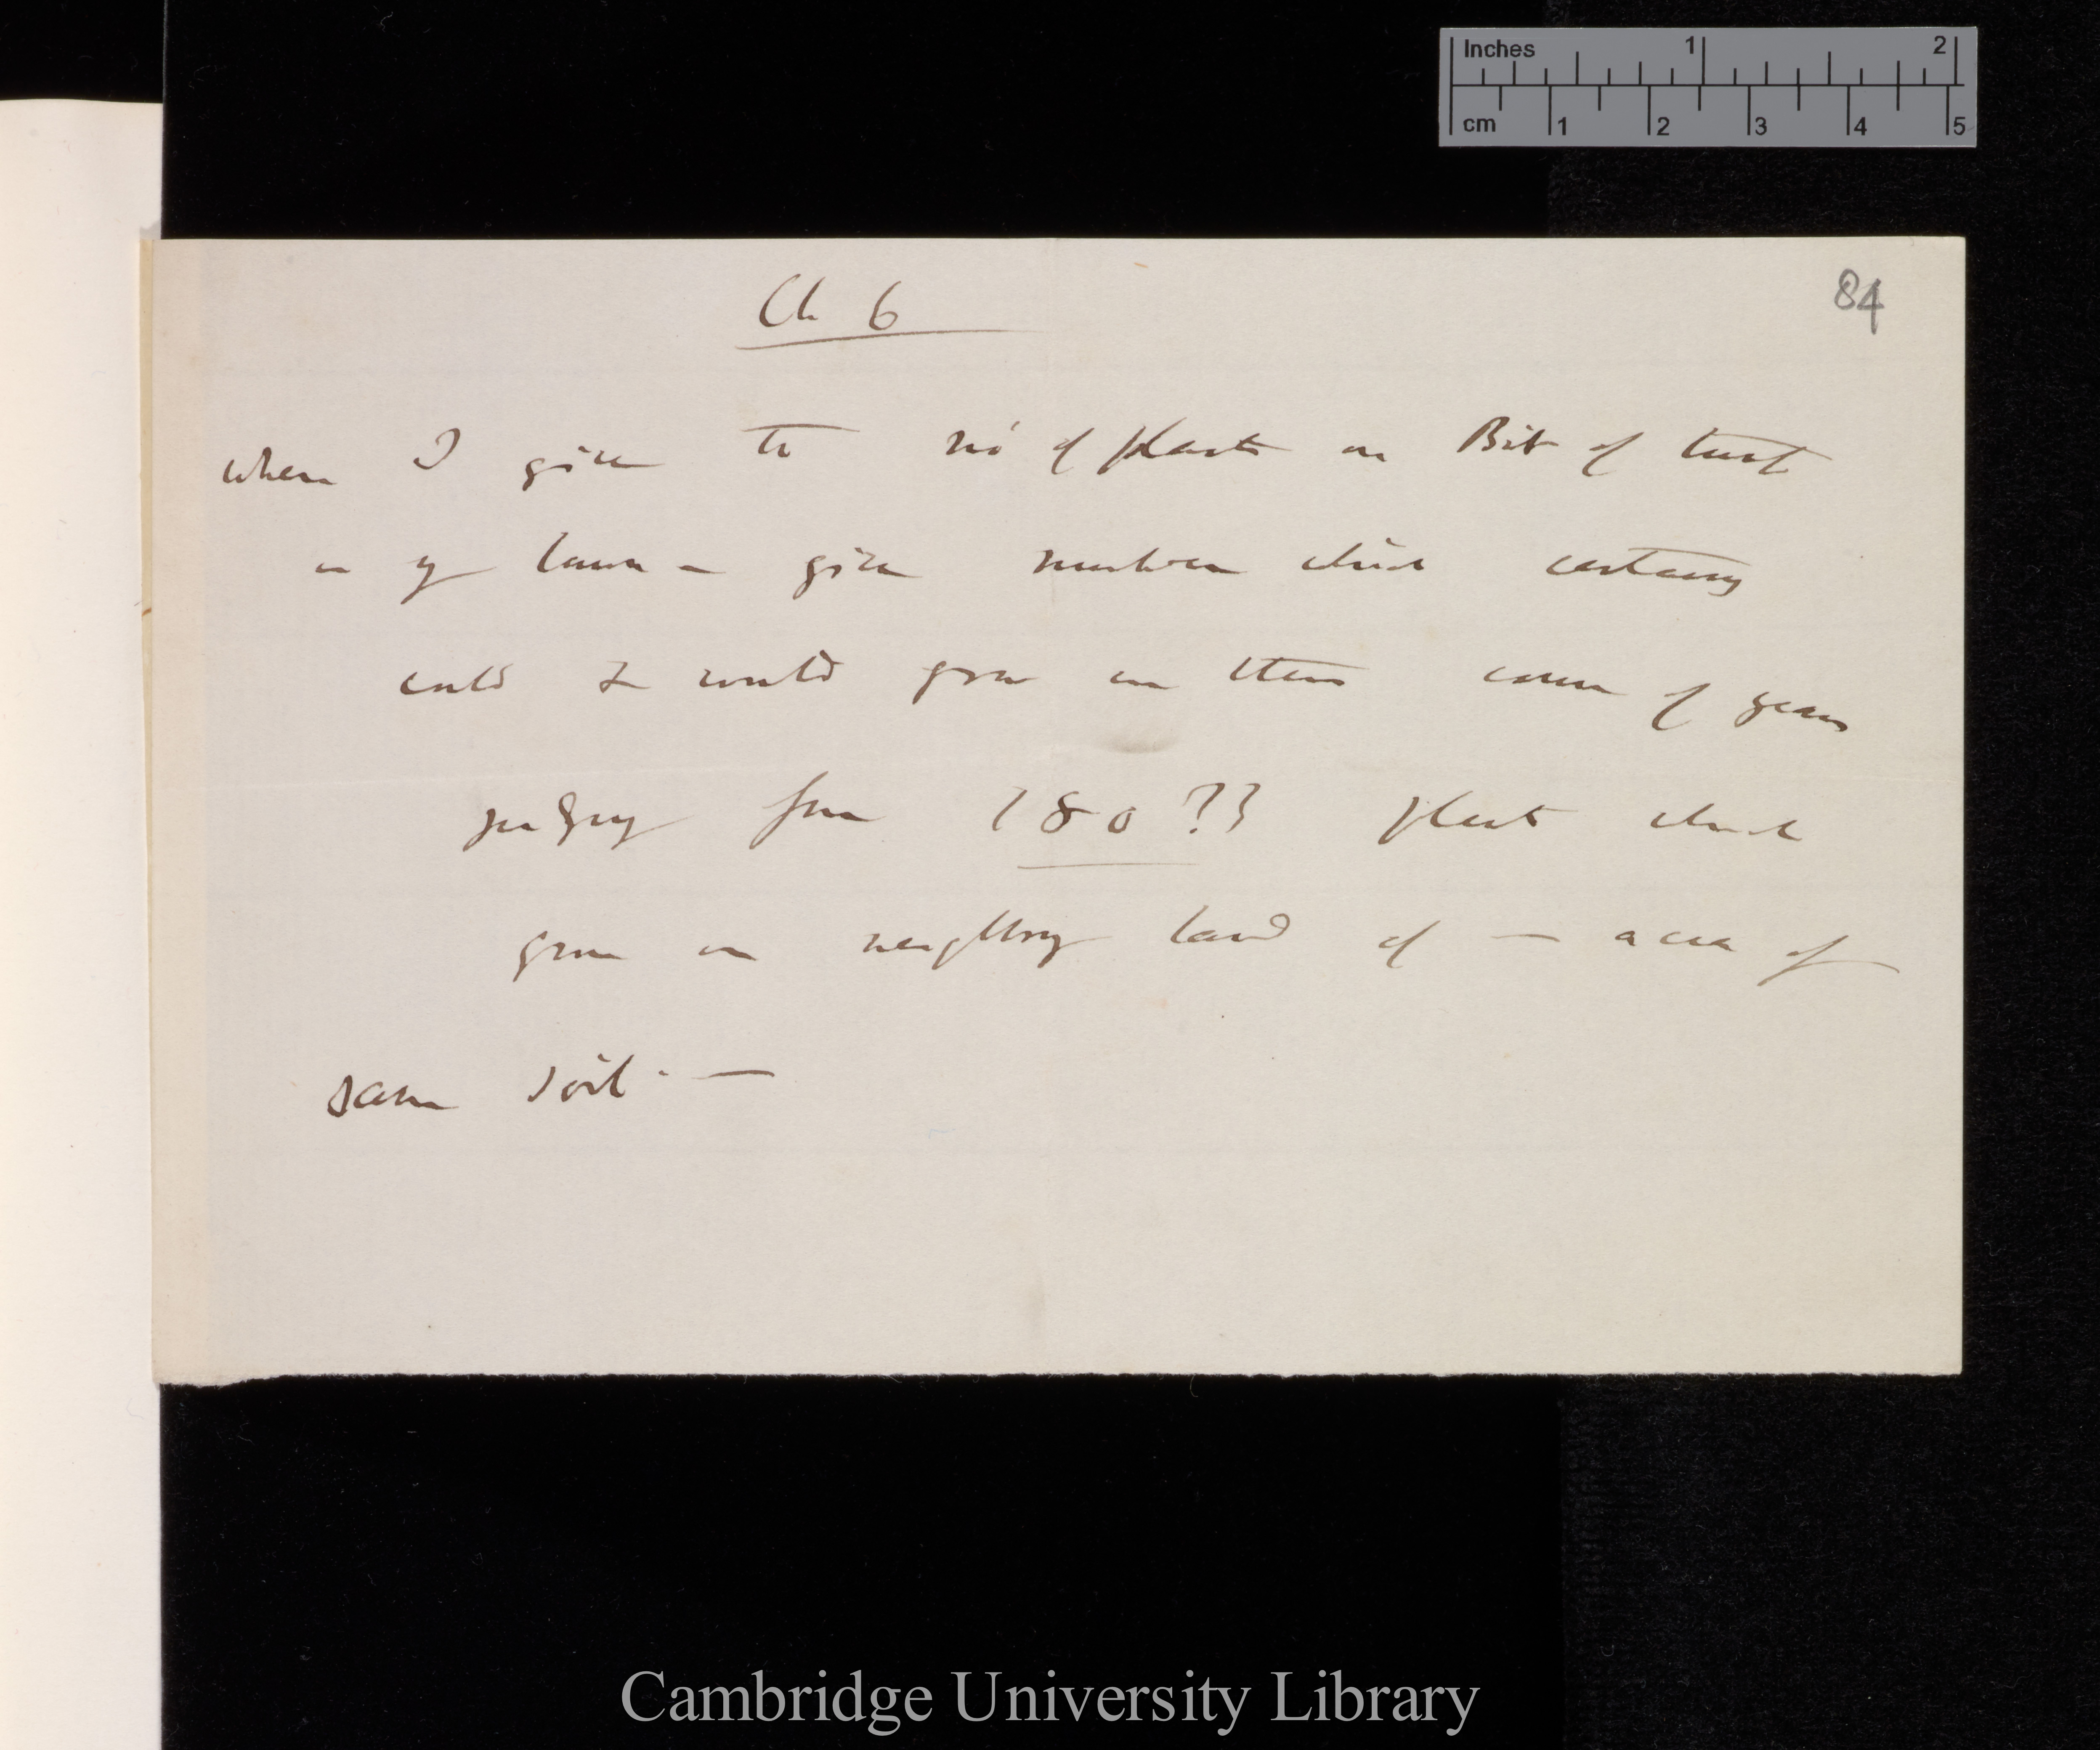 Inches 1 2
cm 1 2 3 4 5
84
Ch 6
When I give the no of plants on Bit of turf
in my lawn — give number which certainly
could & would grow in the course of years
judging from 180 ?? plants which
grow on neighbing land of — acre of
same soil. —
Cambridge University Library